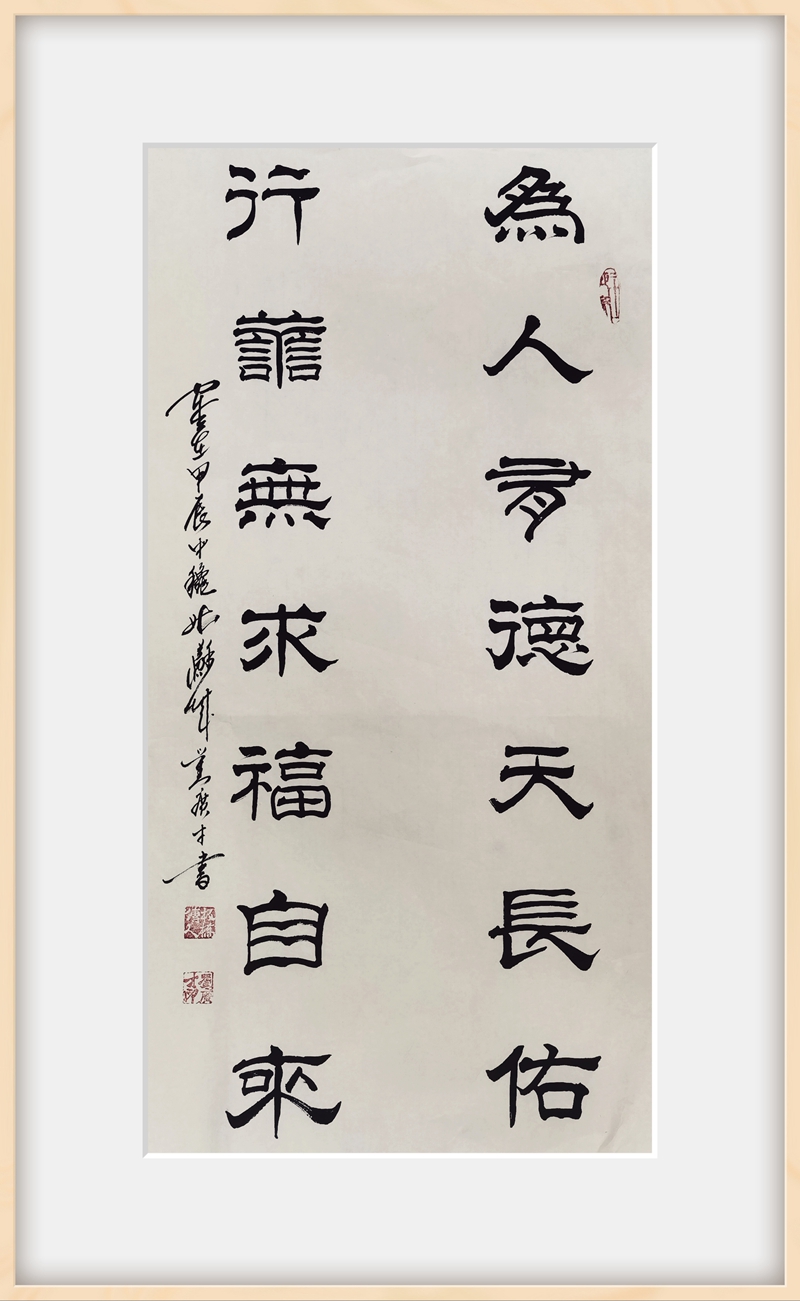 為人有德天長佑
行善無求福自來
歲在甲辰中秋
廣才書